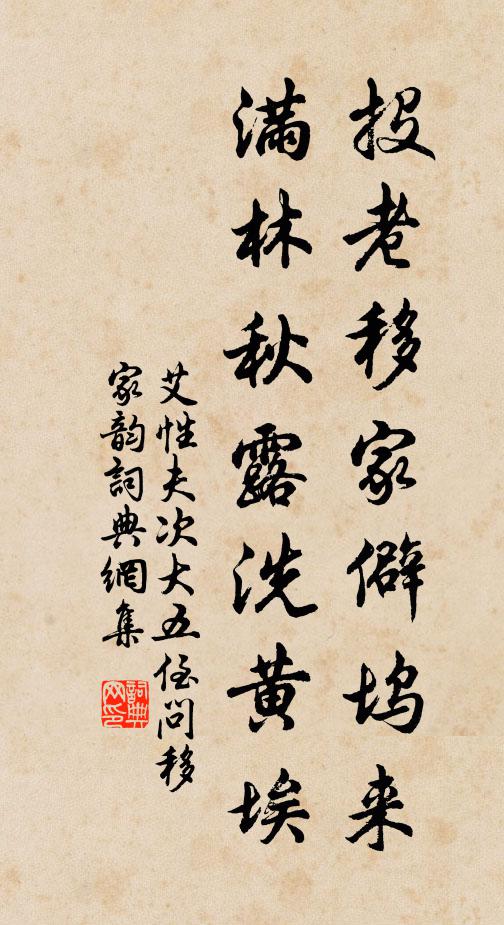 投老移家僻坞来
满林秋露洗黄埃
艾性夫次大五侄问移
家韵詞典網集
詞典网印